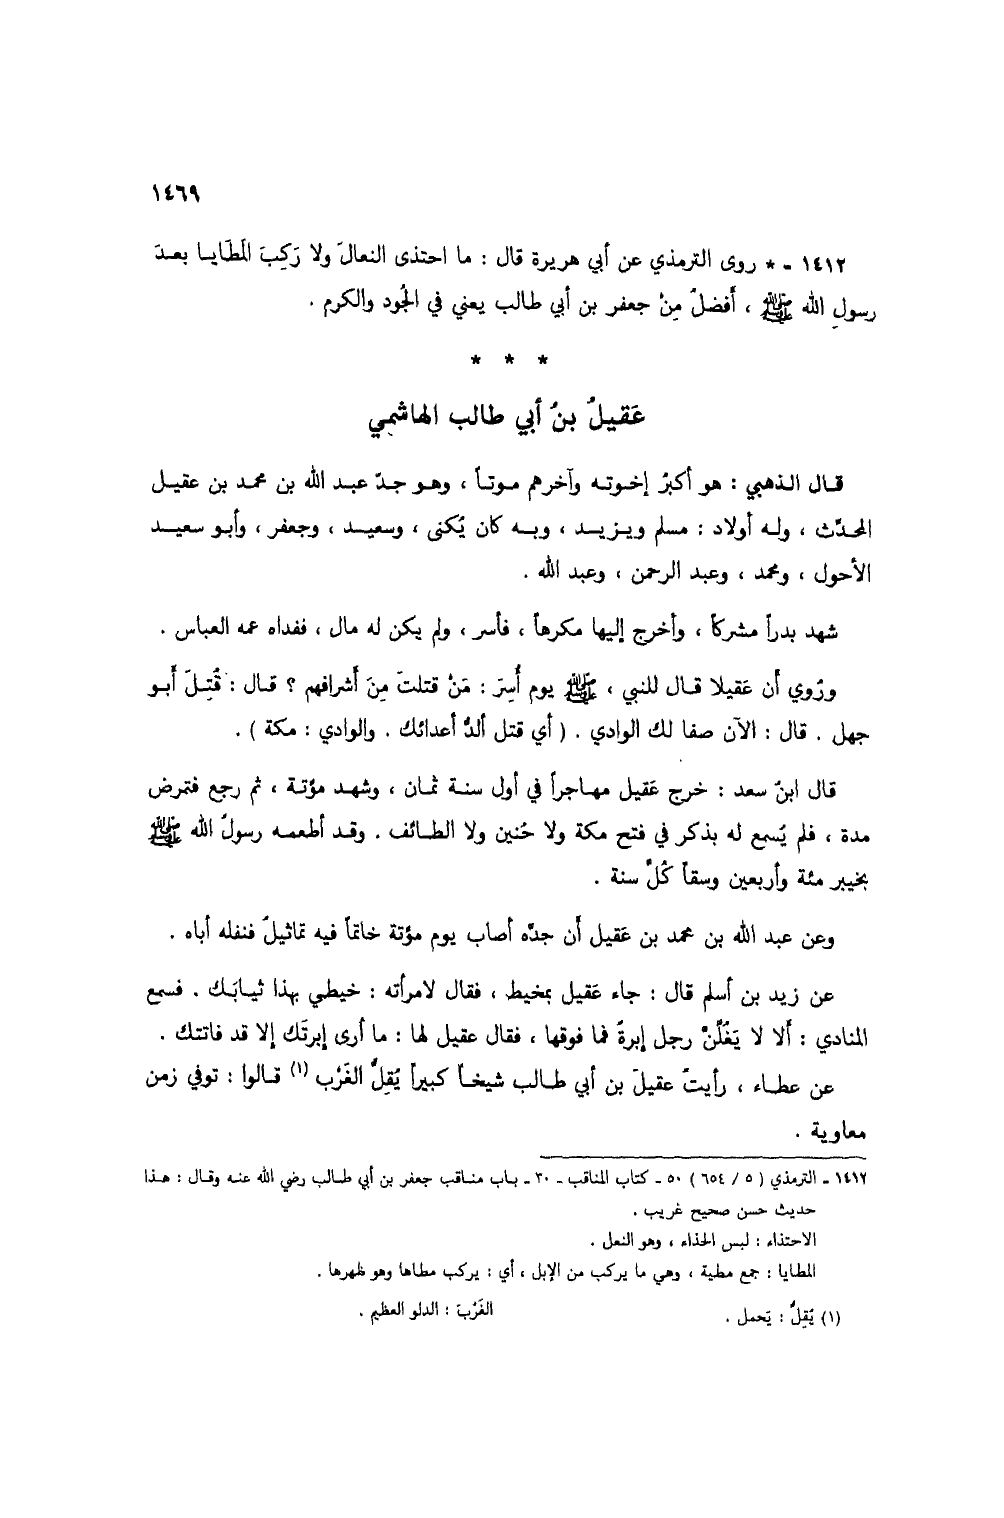 ١٤٦٩
١٤١٢ - * روى الترمذي عن أبي هريرة قال : ما احتذى النعالَ ولا رَكِبَ المَطَايـا بعـدَ
رسولِ الله ﷺ ، أَفضلُ مِنْ جعفر بن أبي طالب يعني في الجُود والكرم .
* * *
عَقيلُ بنُ أبي طالب الهاشمي
قـال الـذهبي : هو أكبرُ إخوتـه وآخرهم موتـاً ، وهـو جـدّ عبـد الله بن محمـد بن عقيـل
المحـدّث ، ولـه أولاد : مسلم ويـزيـد ، وبـه كان يُكنى ، وسعيـد ، وجعفر ، وأبـو سعيـد
الأحول ، ومحمد ، وعبد الرحمن ، وعبد الله .
شهد بدراً مشركاً ، وأخرج إليها مكرهاً ، فأسر ، ولم يكن له مال ، ففداه عمه العباس .
ورُوي أن عَقيلا قـال للنبي ، ﷺ يوم أُسِرَ : مَنْ قتلتَ مِنَ أَشرافهم ؟ قـال : قُتِـلَ أَبـو
جهل . قال : الآن صفا لك الوادي . ( أي قتل ألدُّ أعدائك . والوادي : مكة ) .
قال ابنُ سعد : خرج عَقيل مهـاجراً في أول سنـة ثمـان ، وشهـد مؤتـة ، ثم رجع فتمرض
مدة ، فلم يُسمع له بذكر في فتح مكة ولا حُنين ولا الطـائف . وقـد أطعمـه رسولُ الله ﷺ
بخيبر مئة وأربعين وسقاً كُلَّ سنة .
وعن عبد الله بن محمد بن عَقيل أن جدَّه أصاب يوم مؤتة خاتماً فيه تماثيلُ فنفله أباه .
عن زيد بن أسلم قال : جاء عَقيل بمخيط ، فقال لامرأته : خيطي بهذا ثيـابَـك . فسمع
المنادي : أَلا لا يَغُلَّنَّ رجل إبرةً فما فوقها ، فقال عقيل لها : ما أرى إبرتَك إلا قد فاتتك .
عن عطـاء ، رأيتُ عقيلَ بن أبي طـالب شيخـاً كبيراً يُقِلُّ الغَرْب (١) قـالوا : توفي زمن
معاوية .
١٤١٢ - الترمذي ( ٥ / ٦٥٤ ) ٥٠ - كتاب المناقب - ٣٠ - بـاب منـاقب جعفر بن أبي طـالب رضي الله عنـه وقـال : هـذا
حديث حسن صحيح غريب .
الاحتذاء : لبس الحذاء ، وهو النعل .
المطايا : جمع مطية ، وهي ما يركب من الإبل ، أي : يركب مطاها وهو ظهرها .
(١) يُقِلُّ : يَحمل . الغَرْبَ : الدلو العظيم .